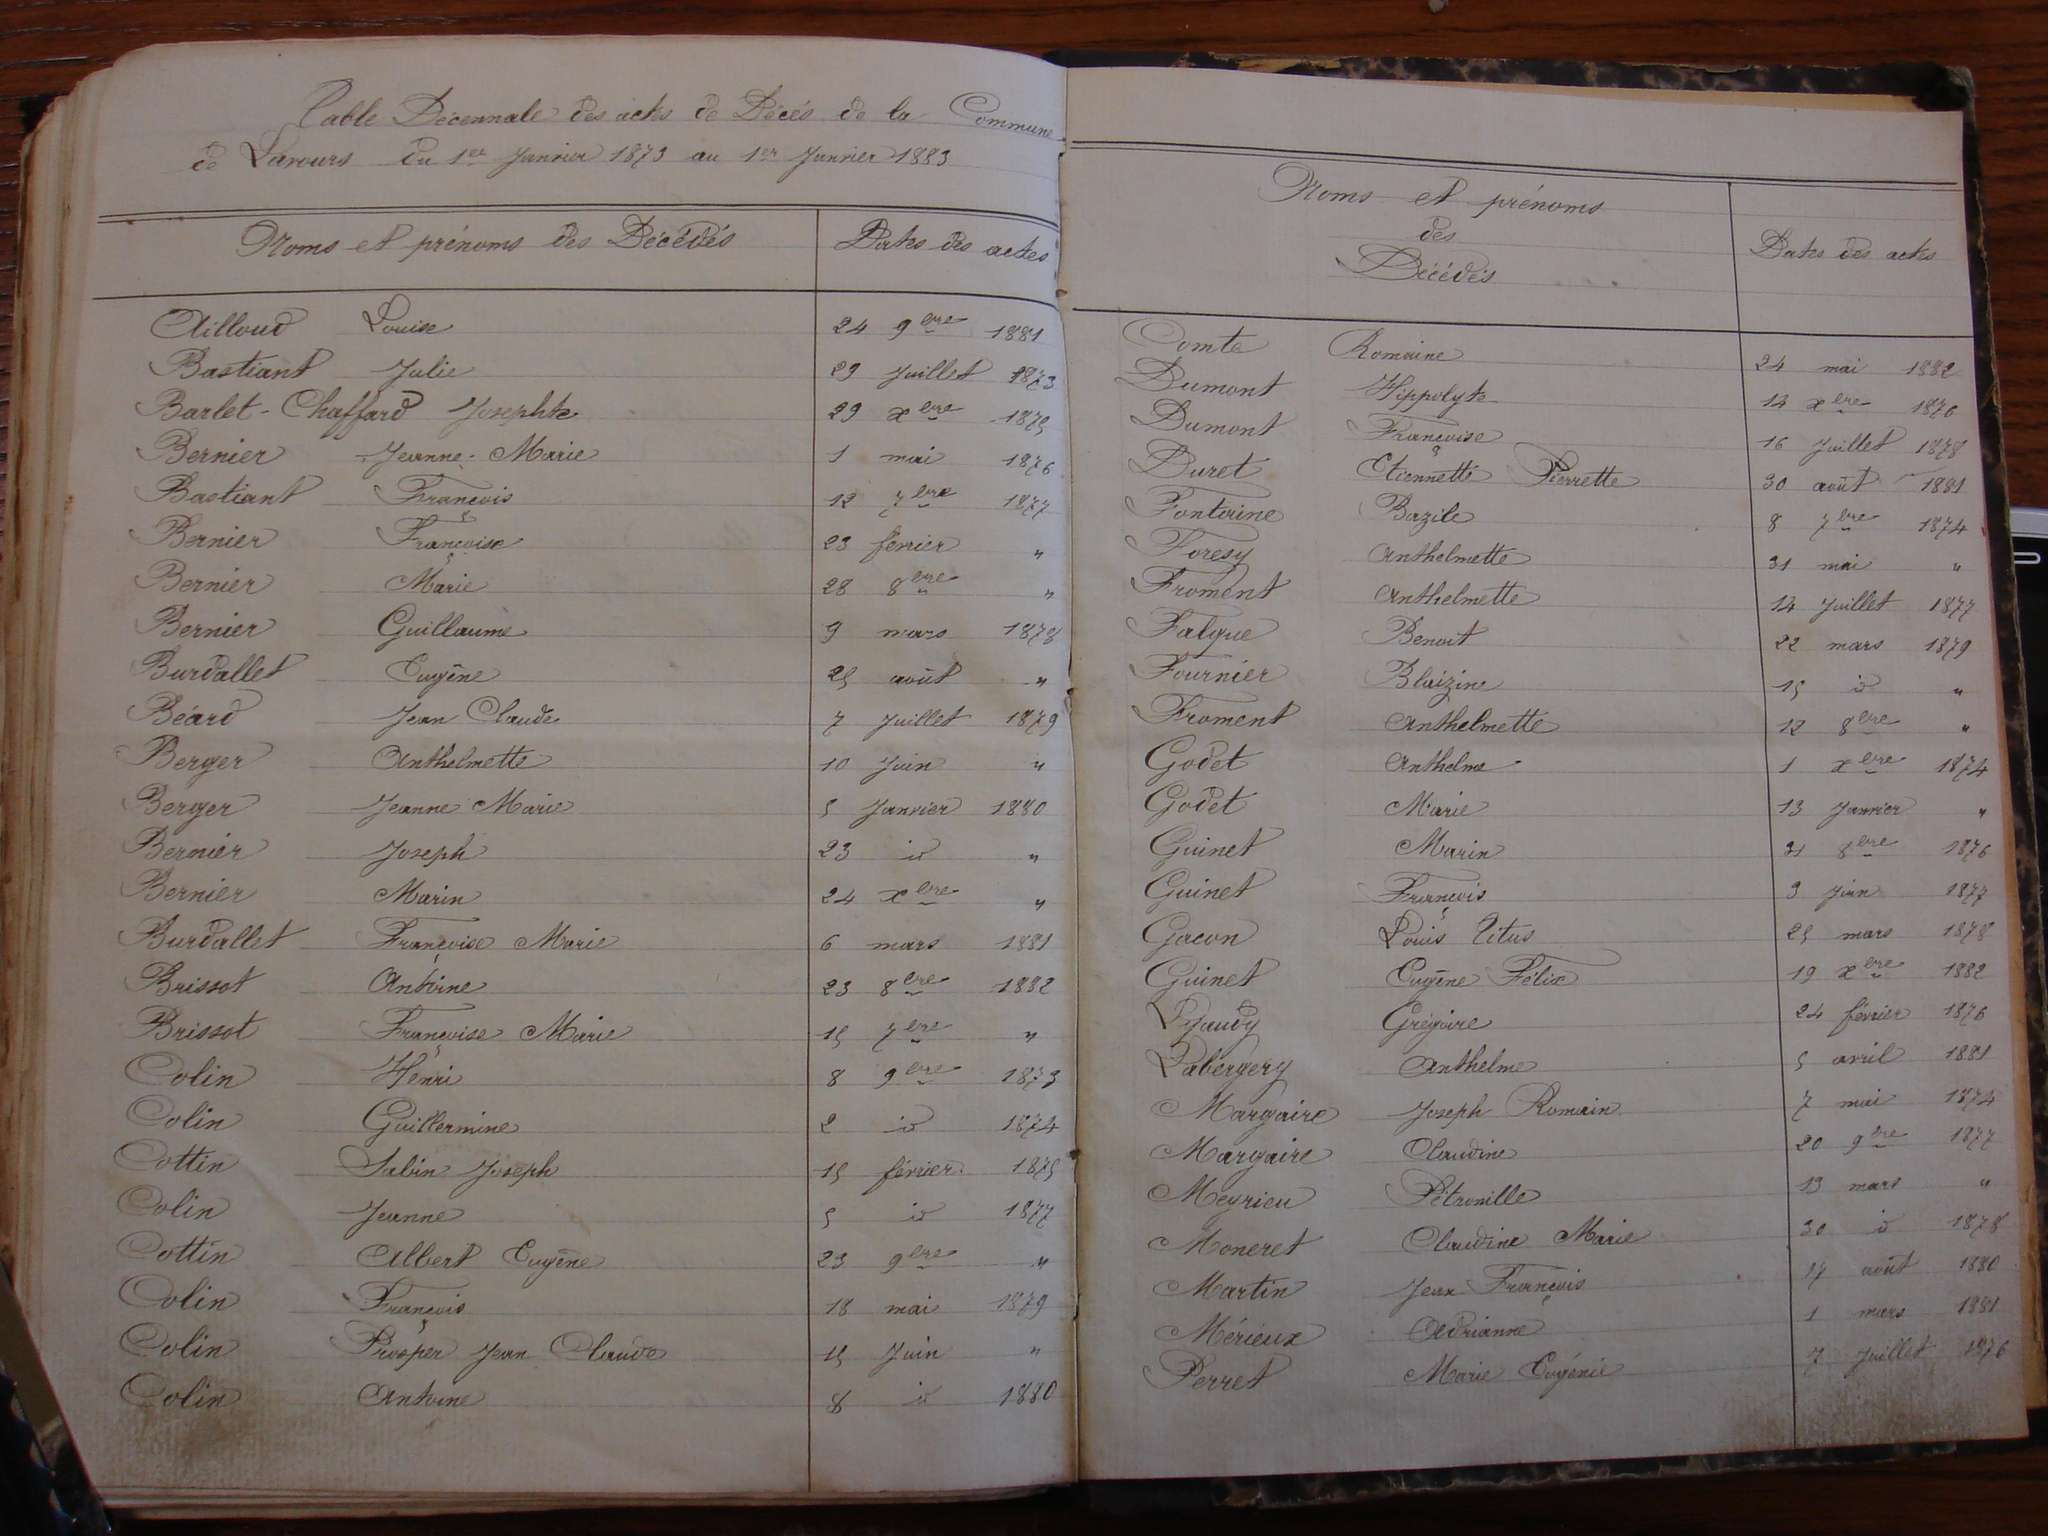 Table Décennale des actes de Décès de la Commune
de Lavours du 1er Janvier 1873 au 1er Janvier 1883
Noms et prénoms des Décédés Dates des actes
Ailloud Louise 24 9bre 1881
Bastiant Julie 29 Juillet 1873
Barlet-Chaffard Josephte 29 xbre 1875
Bernier Jeanne-Marie 1 mai 1876
Bastiant François 12 7bre 1877
Bernier Françoise 23 février "
Bernier Marie 28 8bre "
Bernier Guillaume 9 mars 1878
Burdallet Eugène 25 août "
Béard Jean Claude 7 Juillet 1879
Berger Anthelmette 10 Juin "
Berger Jeanne Marie 5 Janvier 1880
Bernier Joseph 23 id "
Bernier Marin 24 xbre "
Burdallet Françoise Marie 6 mars 1881
Brissot Antoine 23 8bre 1882
Brissot Françoise Marie 15 7bre "
Colin Henri 8 9bre 1873
Colin Guillermine 2 id 1874
Cottin Sabin Joseph 15 février 1875
Colin Jeanne 5 id 1877
Cottin Albert Eugène 23 9bre "
Colin François 18 mai 1879
Colin Prosper Jean Claude 15 Juin "
Colin Antoine 8 id 1880
Noms et prénoms
des
Décédés
Dates des actes
Comte Romaine 24 mai 1882
Dumont Hippolyte 14 xbre 1876
Dumont Françoise 16 Juillet 1878
Duret Etiennette Pierrette 30 août 1881
Fontaine Bazile 8 7bre 1874
Foresy Anthelmette 31 mai "
Froment Anthelmette 14 Juillet 1877
Falque Benoit 22 mars 1879
Fournier Blaizine 15 id "
Froment Anthelmette 12 8bre "
Godet Anthelme 1 xbre 1874
Godet Marie 13 Janvier "
Guinet Marin 31 8bre 1876
Guinet François 3 Juin 1877
Gacon Louis Titus 25 mars 1878
Guinet Eugène Félix 19 xbre 1882
Grégoire 24 février 1876
Labergery Anthelme 5 avril 1881
Margaire Joseph Romain 7 mai 1874
Margaire Claudine 20 9bre 1877
Meyrieu Pétronille 13 mars "
Moneret Claudine Marie 30 id 1878
Martin Jean François 17 août 1880
Mérieux Adrianne 1 mars 1881
Perret Marie Eugénie 7 Juillet 1876